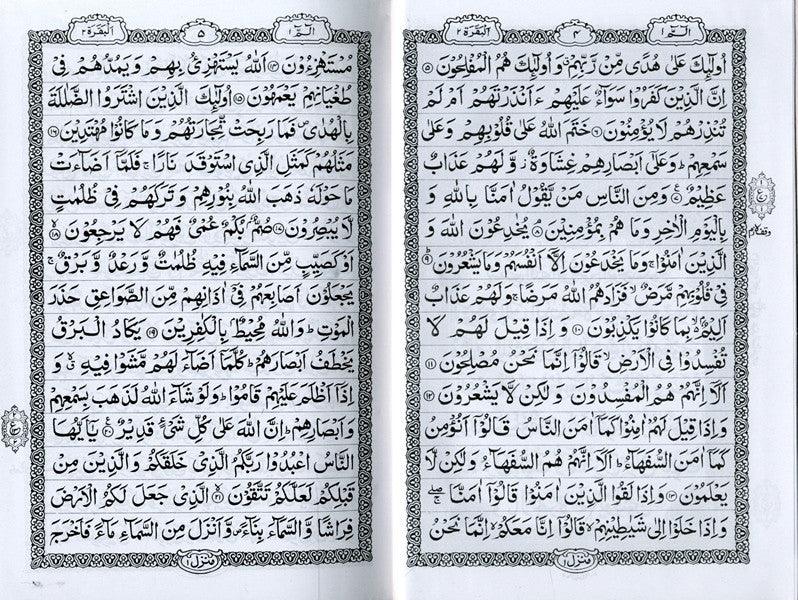 الٓمّٓ ١
٤
الْبَقَرَة ٢
اُولٰٓئِكَ عَلٰى هُدًى مِّنْ رَّبِّهِمْ ۙ وَ اُولٰٓئِكَ هُمُ الْمُفْلِحُوْنَ ۝٥
اِنَّ الَّذِيْنَ كَفَرُوْا سَوَآءٌ عَلَيْهِمْ ءَاَنْذَرْتَهُمْ اَمْ لَمْ
تُنْذِرْهُمْ لَا يُؤْمِنُوْنَ ۝٦ خَتَمَ اللّٰهُ عَلٰى قُلُوْبِهِمْ وَ عَلٰى
سَمْعِهِمْ ؕ وَ عَلٰٓى اَبْصَارِهِمْ غِشَاوَةٌ ؗ وَّ لَهُمْ عَذَابٌ
عَظِيْمٌ ۝٧ وَ مِنَ النَّاسِ مَنْ يَّقُوْلُ اٰمَنَّا بِاللّٰهِ وَ
بِالْيَوْمِ الْاٰخِرِ وَ مَا هُمْ بِمُؤْمِنِيْنَ ۝٨ يُخٰدِعُوْنَ اللّٰهَ وَ
الَّذِيْنَ اٰمَنُوْا ۚ وَ مَا يَخْدَعُوْنَ اِلَّاۤ اَنْفُسَهُمْ وَ مَا يَشْعُرُوْنَ ۝٩
فِيْ قُلُوْبِهِمْ مَّرَضٌ ۙ فَزَادَهُمُ اللّٰهُ مَرَضًا ۚ وَ لَهُمْ عَذَابٌ
اَلِيْمٌۢ ۙ بِمَا كَانُوْا يَكْذِبُوْنَ ۝١٠ وَ اِذَا قِيْلَ لَهُمْ لَا
تُفْسِدُوْا فِي الْاَرْضِ ۙ قَالُوْۤا اِنَّمَا نَحْنُ مُصْلِحُوْنَ ۝١١
اَلَاۤ اِنَّهُمْ هُمُ الْمُفْسِدُوْنَ وَ لٰكِنْ لَّا يَشْعُرُوْنَ ۝١٢
وَ اِذَا قِيْلَ لَهُمْ اٰمِنُوْا كَمَاۤ اٰمَنَ النَّاسُ قَالُوْۤا اَنُؤْمِنُ
كَمَاۤ اٰمَنَ السُّفَهَآءُ ؕ اَلَاۤ اِنَّهُمْ هُمُ السُّفَهَآءُ وَ لٰكِنْ لَّا
يَعْلَمُوْنَ ۝١٣ وَ اِذَا لَقُوا الَّذِيْنَ اٰمَنُوْا قَالُوْۤا اٰمَنَّا ۖۚ
وَ اِذَا خَلَوْا اِلٰى شَيٰطِيْنِهِمْ ۙ قَالُوْۤا اِنَّا مَعَكُمْ ۙ اِنَّمَا نَحْنُ
مَنْزِل ١
الٓمّٓ ١
٥
الْبَقَرَة ٢
مُسْتَهْزِءُوْنَ ۝١٤ اَللّٰهُ يَسْتَهْزِئُ بِهِمْ وَ يَمُدُّهُمْ فِيْ
طُغْيَانِهِمْ يَعْمَهُوْنَ ۝١٥ اُولٰٓئِكَ الَّذِيْنَ اشْتَرَوُا الضَّلٰلَةَ
بِالْهُدٰى ۪ فَمَا رَبِحَتْ تِّجَارَتُهُمْ وَ مَا كَانُوْا مُهْتَدِيْنَ ۝١٦
مَثَلُهُمْ كَمَثَلِ الَّذِي اسْتَوْقَدَ نَارًا ۚ فَلَمَّاۤ اَضَآءَتْ
مَا حَوْلَهٗ ذَهَبَ اللّٰهُ بِنُوْرِهِمْ وَ تَرَكَهُمْ فِيْ ظُلُمٰتٍ
لَّا يُبْصِرُوْنَ ۝١٧ صُمٌّۢ بُكْمٌ عُمْيٌ فَهُمْ لَا يَرْجِعُوْنَ ۝١٨
اَوْ كَصَيِّبٍ مِّنَ السَّمَآءِ فِيْهِ ظُلُمٰتٌ وَّ رَعْدٌ وَّ بَرْقٌ ۚ
يَجْعَلُوْنَ اَصَابِعَهُمْ فِيْۤ اٰذَانِهِمْ مِّنَ الصَّوَاعِقِ حَذَرَ
الْمَوْتِ ؕ وَ اللّٰهُ مُحِيْطٌۢ بِالْكٰفِرِيْنَ ۝١٩ يَكَادُ الْبَرْقُ
يَخْطَفُ اَبْصَارَهُمْ ؕ كُلَّمَاۤ اَضَآءَ لَهُمْ مَّشَوْا فِيْهِ ۙۗ وَ
اِذَاۤ اَظْلَمَ عَلَيْهِمْ قَامُوْا ؕ وَ لَوْ شَآءَ اللّٰهُ لَذَهَبَ بِسَمْعِهِمْ
وَ اَبْصَارِهِمْ ؕ اِنَّ اللّٰهَ عَلٰى كُلِّ شَيْءٍ قَدِيْرٌ ۝٢٠ يٰۤاَيُّهَا
النَّاسُ اعْبُدُوْا رَبَّكُمُ الَّذِيْ خَلَقَكُمْ وَ الَّذِيْنَ مِنْ
قَبْلِكُمْ لَعَلَّكُمْ تَتَّقُوْنَ ۝٢١ الَّذِيْ جَعَلَ لَكُمُ الْاَرْضَ
فِرَاشًا وَّ السَّمَآءَ بِنَآءً ۪ وَّ اَنْزَلَ مِنَ السَّمَآءِ مَآءً فَاَخْرَجَ
مَنْزِل ١